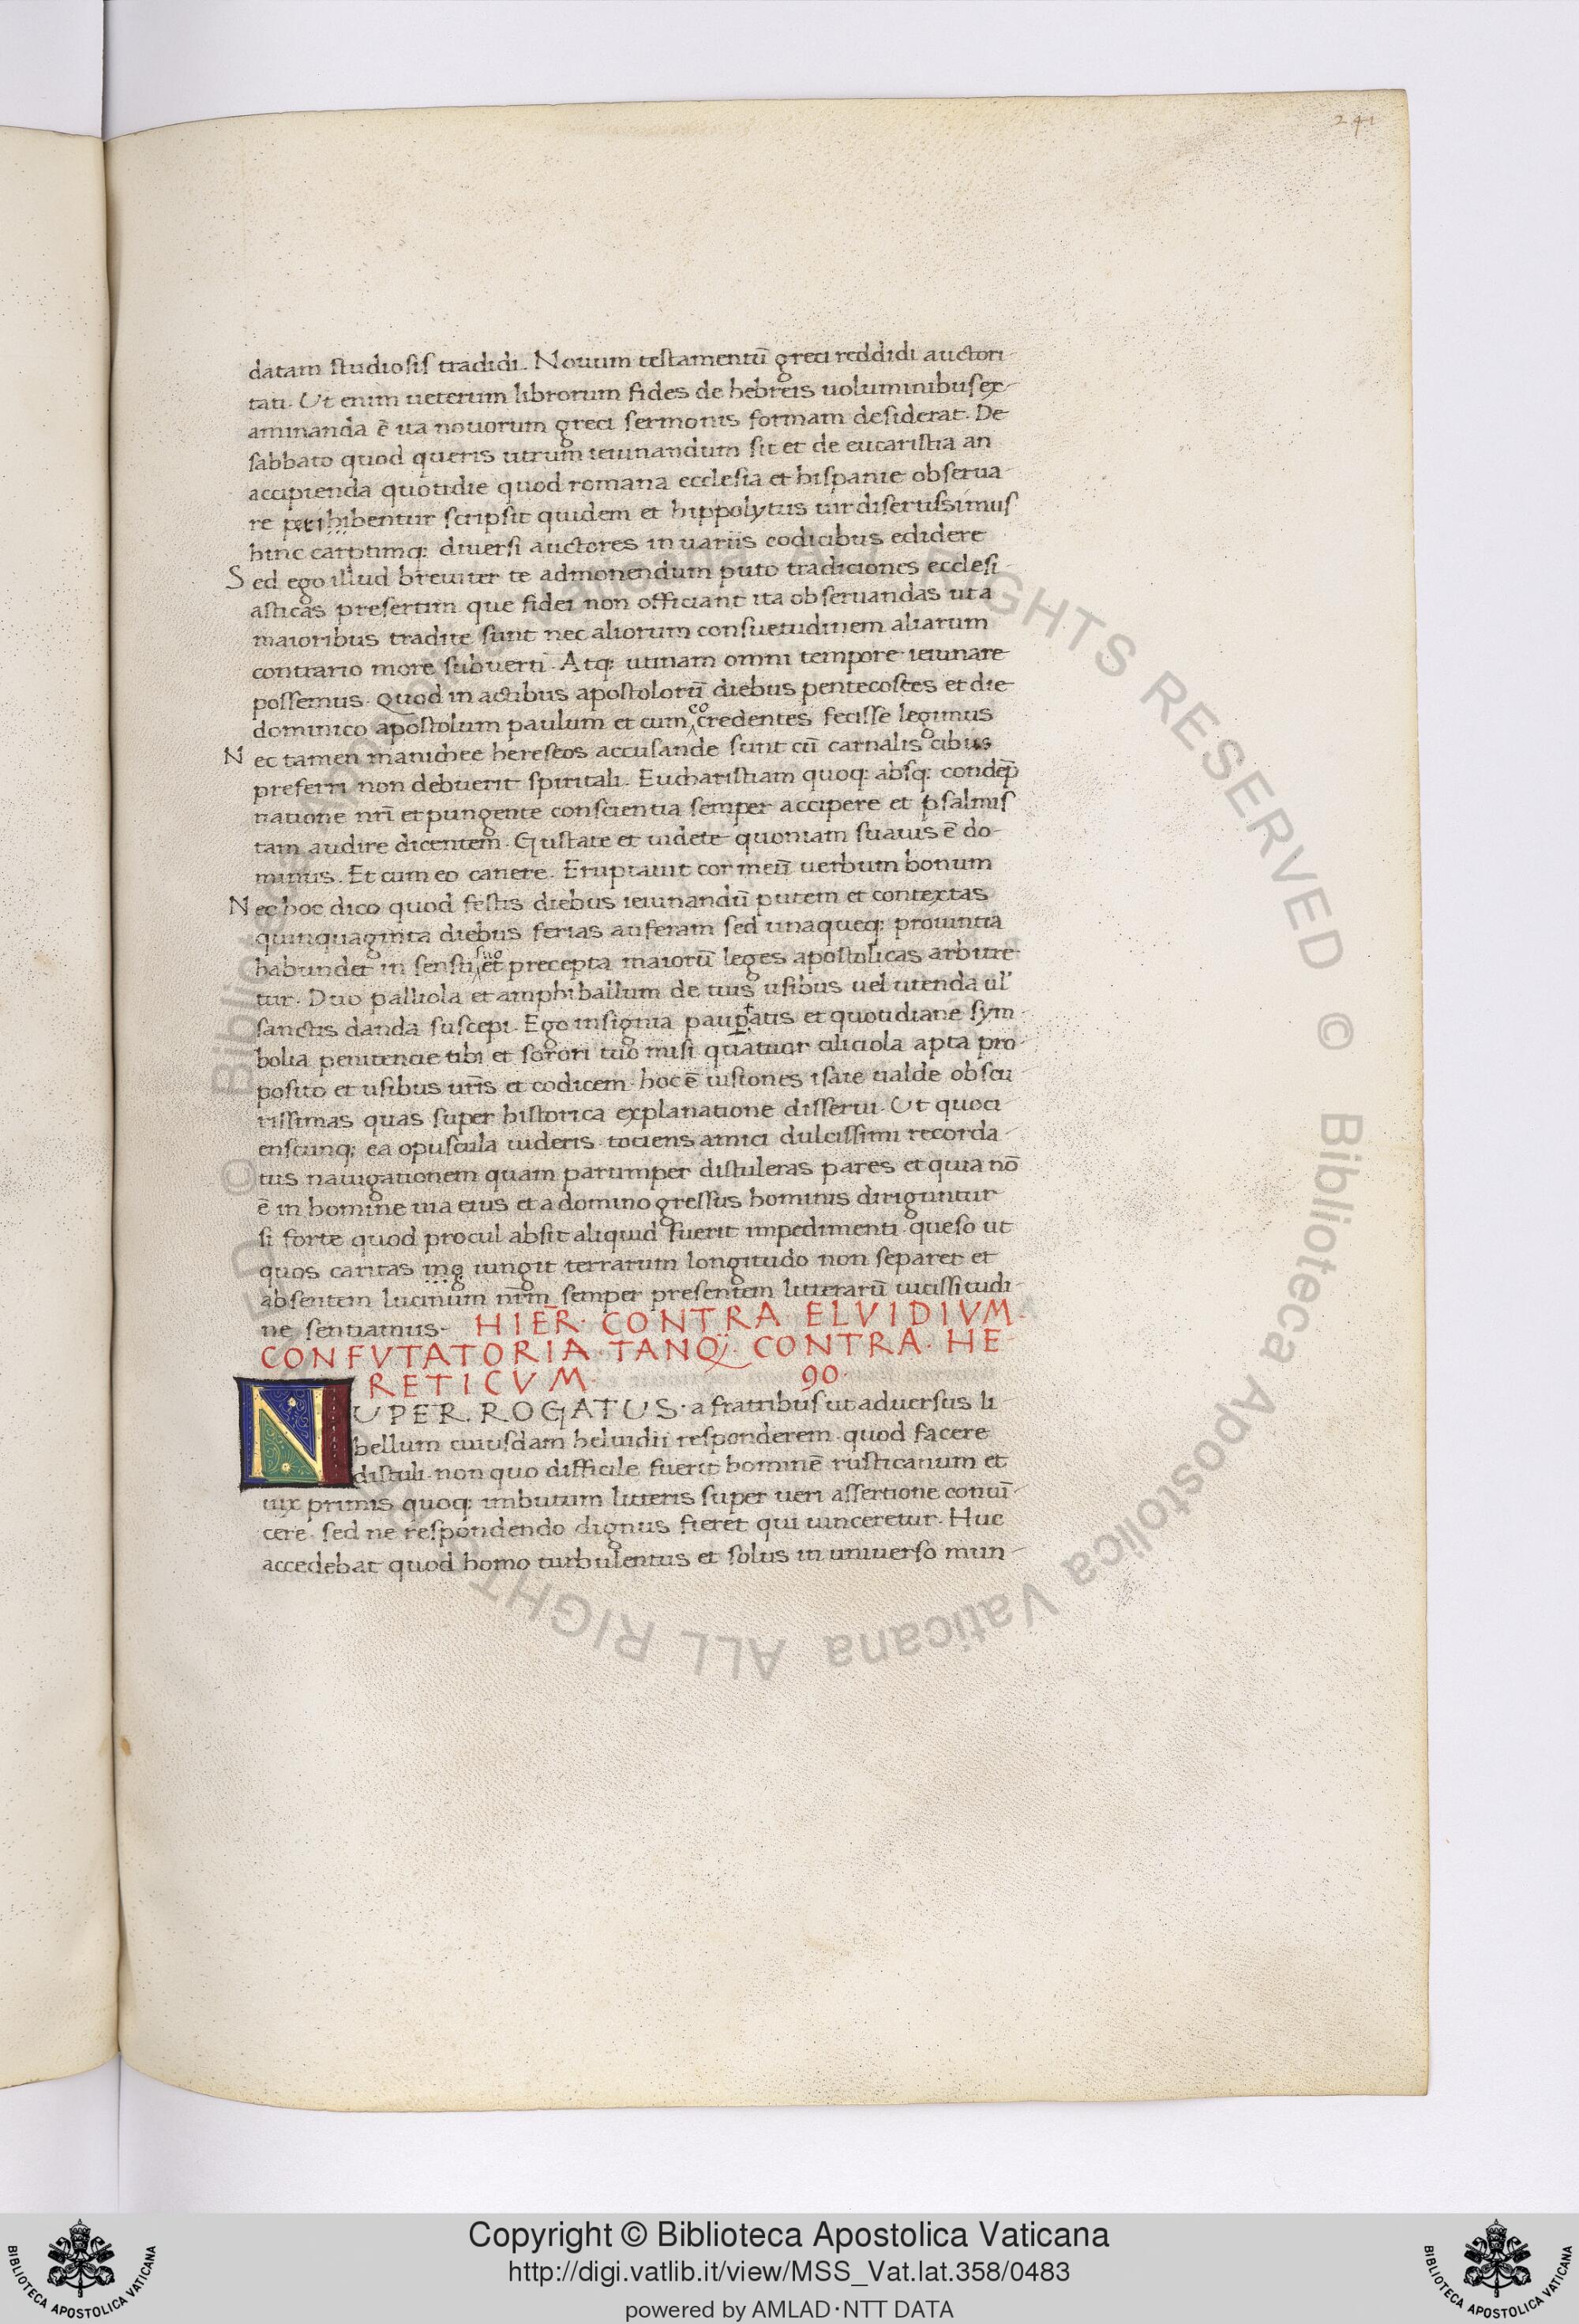 241
datam studiosis tradidi. Nouum testamentū greci reddidi auctori-
tati. Ut enim ueterum librorum fides de hebreis uoluminibus ex-
aminanda ē ita nouorum greci sermonis formam desiderat. De
sabbato quod queris utrum ieiunandum sit et de eucaristia an
accipienda quotidie quod romana ecclesia et hispanie obserua-
re perhibentur scripsit quidem et hippolytus uir disertissimus
hinc carptimq: diuersi auctores in uariis codicibus edidere
Sed ego illud breuiter te admonendum puto tradiciones ecclesi-
asticas presertim que fidei non officiant ita obseruandas ut a
maioribus tradite sunt nec aliorum consuetudinem aliarum
contrario more subuerti. Atq: utinam omni tempore ieiunare
possemus. Quod in actibus apostolorū diebus pentecostes et die
dominico apostolum paulum et cum eo credentes fecisse legimus
Nec tamen manichee hereseos accusande sunt cū carnalis cibus
preferri non debuerit spiritali. Eucharistiam quoq: absq: condep̄
natione nrī et pungente conscientia semper accipere et psalmis
tam audire dicentem. Gustate et uidete quoniam suauis ē do-
minus. Et cum eo canere. Eructauit cor meū uerbum bonum
Nec hoc dico quod festis diebus ieiunandū putem et contextas
quinquaginta diebus ferias auferam sed unaqueq: prouintia
habundet in sensu suo et precepta maiorū leges apostolicas arbitre-
tur. Duo palliola et amphiballum de tuis usibus uel utenda ul'
sanctis danda suscepi. Ego insignia paup̱atis et quotidiane sym-
bolia penitencie tibi et sorori tue misi quatuor ciliciola apta pro-
posito et usibus urīs et codicem. hoc ē uisiones isaie ualde obscu
rissimas quas super historica explanatione disserui. Ut quoci-
enscunq: ea opuscula uideris tociens amici dulcissimi recorda-
tus nauigationem quam parumper distuleras pares et quia nō
ē in homine uia eius et a domino gressus hominis diriguntur
si forte quod procul absit aliquid fuerit impedimenti. queso ut
quos caritas iungit terrarum longitudo non separet et
absentem lucinum nrm̄ semper presentem litterarū uicissitudi-
ne sentiamus. HIER̄. CONTRA ELVIDIVM.
CONFVTATORIA. TANQ̄. CONTRA. HE-
RETICVM. 90.
NUPER. ROGATUS. a fratribus ut aduersus li-
bellum cuiusdam heluidii responderem. quod facere
distuli. non quo difficile fuerit hominē rusticanum et
uix primis quoq: imbutum litteris super ueri assertione conuī-
cere. sed ne respondendo dignus fieret qui uinceretur. Huc
accedebat quod homo turbulentus et solus in uniuerso mun-
© Biblioteca Apostolica Vaticana ALL RIGHTS RESERVED © Biblioteca Apostolica Vaticana ALL RIGHTS RESERVED
BIBLIOTECA APOSTOLICA VATICANA
Copyright © Biblioteca Apostolica Vaticana
http://digi.vatlib.it/view/MSS_Vat.lat.358/0483
powered by AMLAD·NTT DATA
BIBLIOTECA APOSTOLICA VATICANA